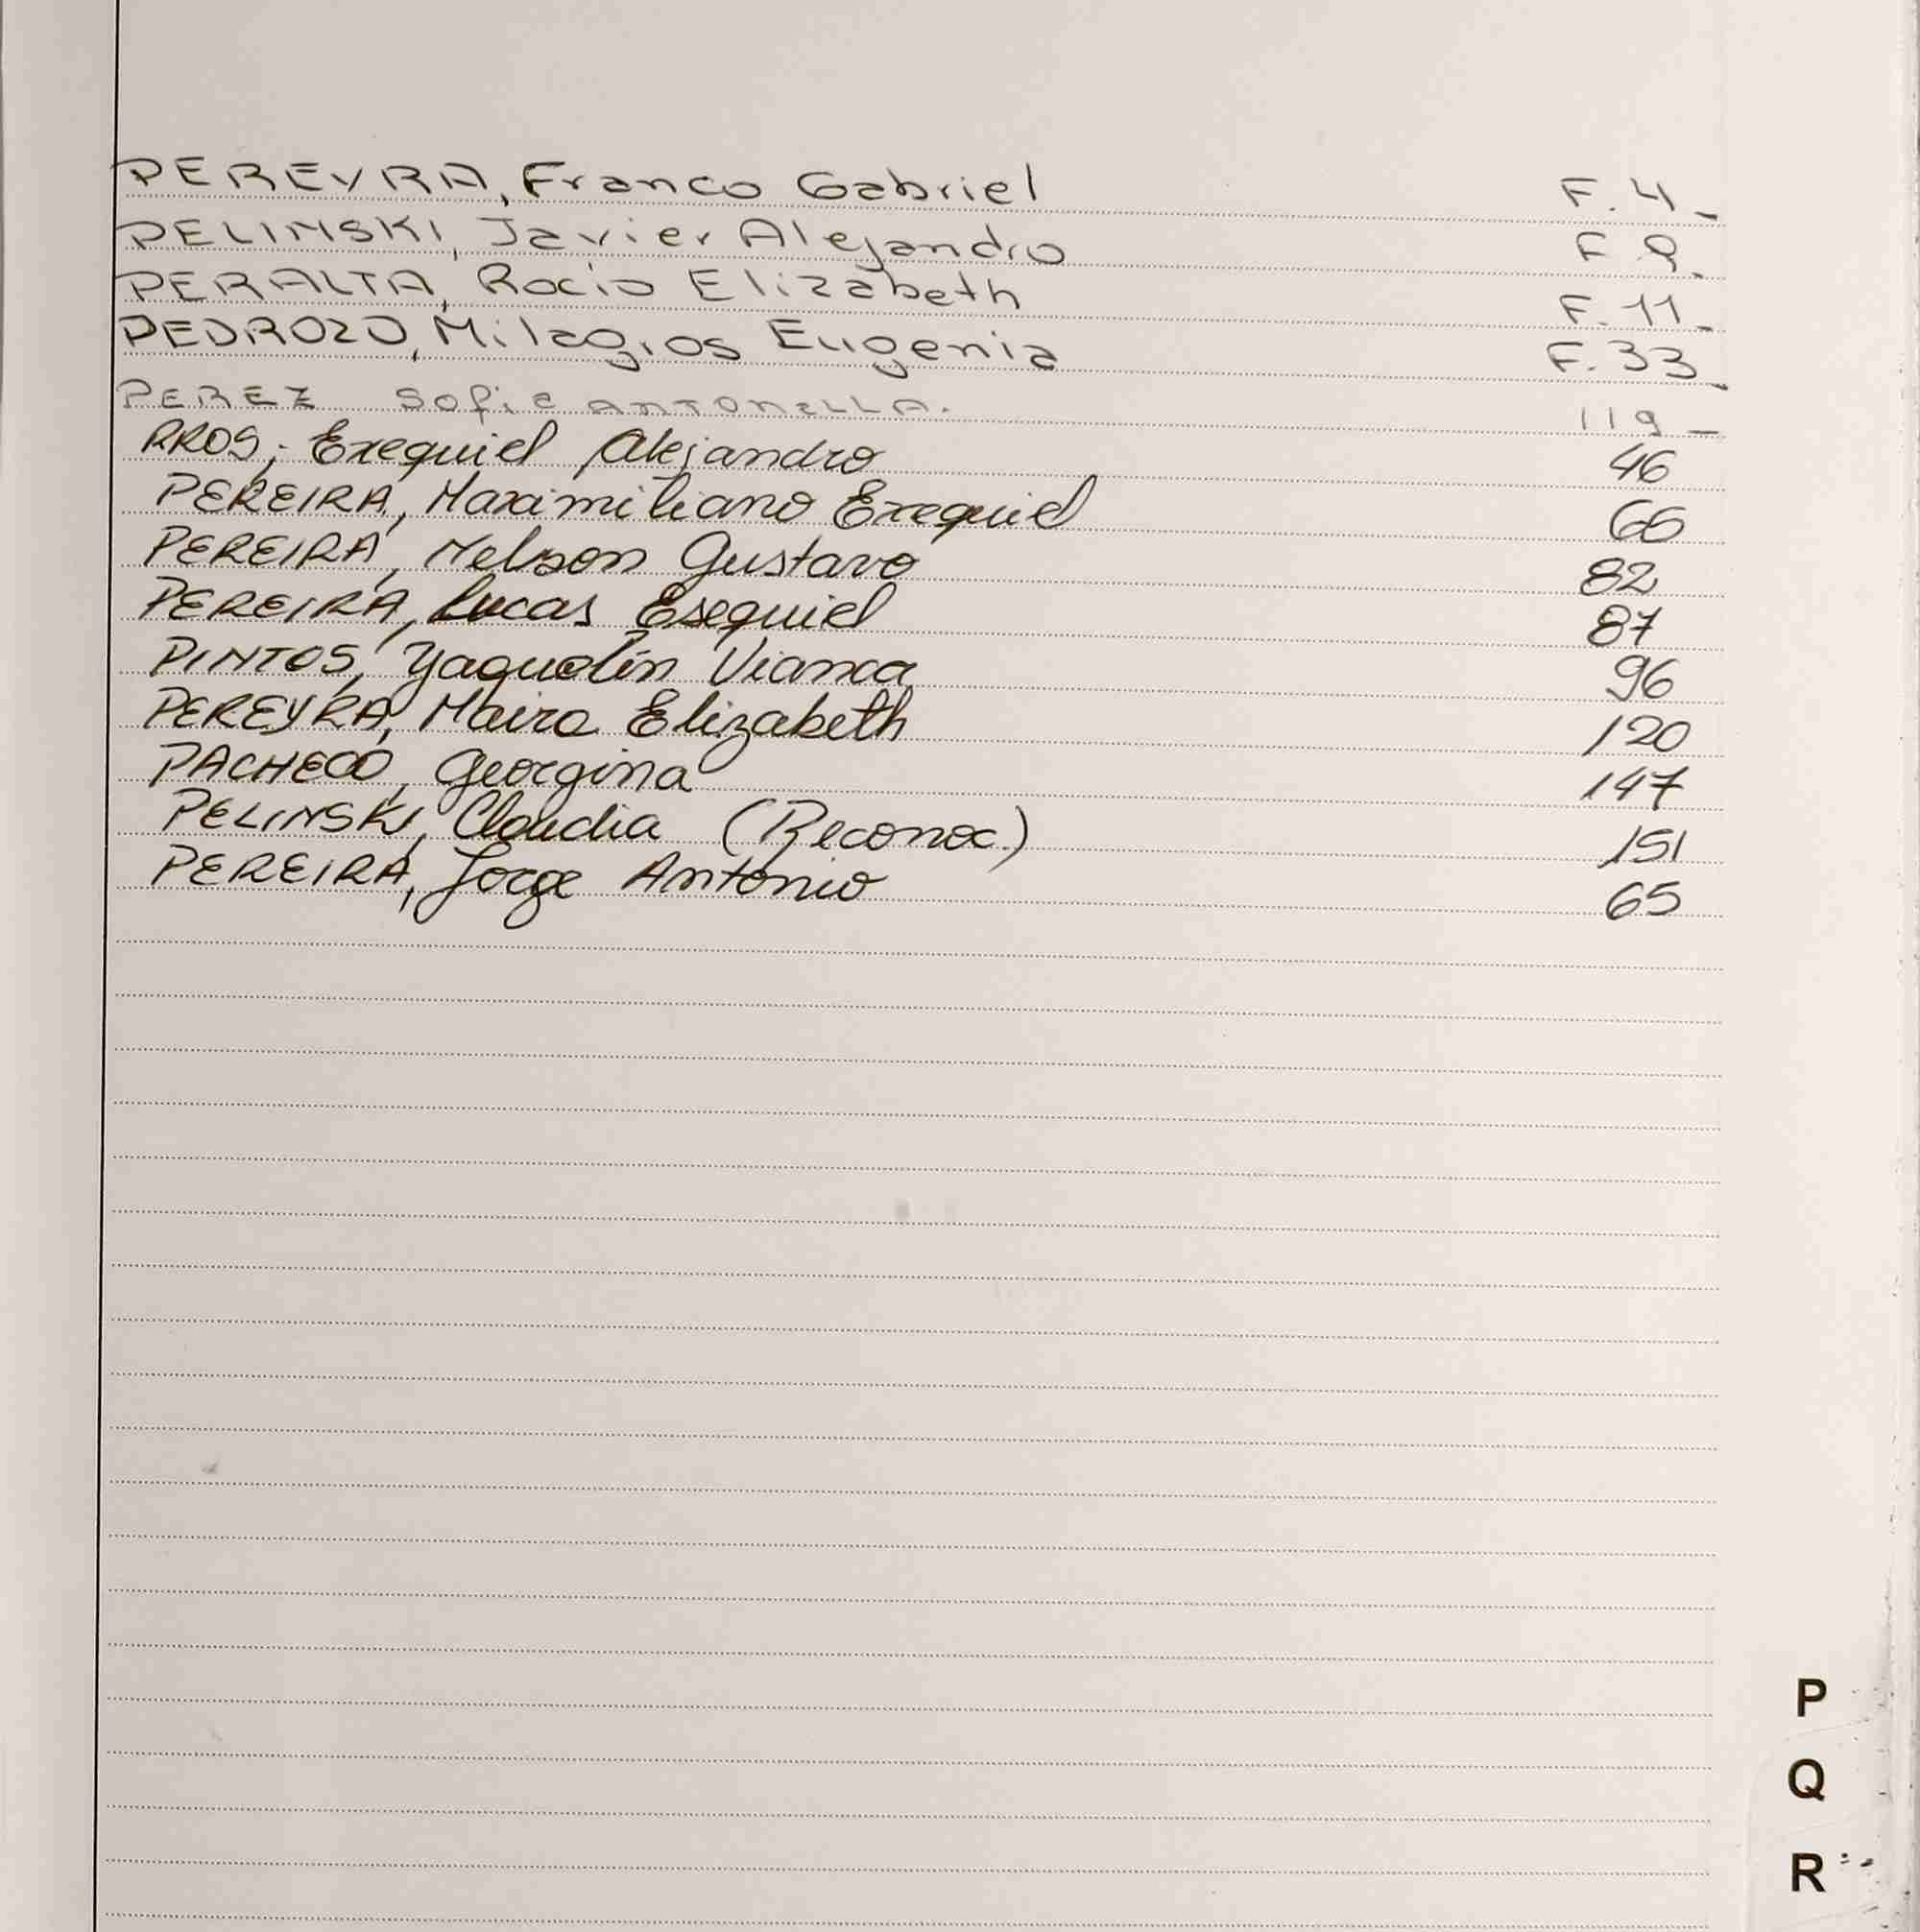 PEREYRA, Franco Gabriel F. 4_
PELINSKI, Javier Alejandro F 9.
PERALTA, Rocio Elizabeth F. 11_
PEDROZO, Milagros Eugenia F. 33_
PEREZ Sofia ANTONELLA. 119_
Exequiel Alejandro 46
PEREIRA, Maximiliano Exequiel 66
PEREIRA, Nelson Gustavo 82
PEREIRA, Lucas Esequiel 87
PINTOS, Yaquelin Vianca 96
PEREYRA, Maira Elizabeth 120
PACHECO, Georgina 147
PELINSKI, Claudia (Reconoc.) 151
PEREIRA, Jorge Antonio 65
P
Q
R